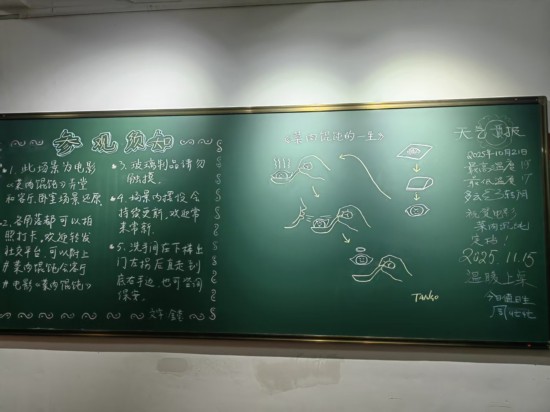 参观须知
1、此场景为电影
《菜肉馄饨》客堂
和客厅、卧室场景还原
2、各角落都可以拍
照打卡，欢迎转发
社交平台，可以附上
#菜肉馄饨会客厅
#电影《菜肉馄饨》
3、玻璃制品请勿
触摸。
4、场景内摆设会
持续更新，欢迎常
来常新。
5、洗手间在下楼出
门左拐后直走到
底右手边，也可咨询
保安。
菜肉馄饨的一生
TANGO
天气预报
2025年10月21日
最高温度 15
最低温度
多云
祝贺电影
菜肉馄饨
定档！
2025.11.15
温暖上桌
今日值日生